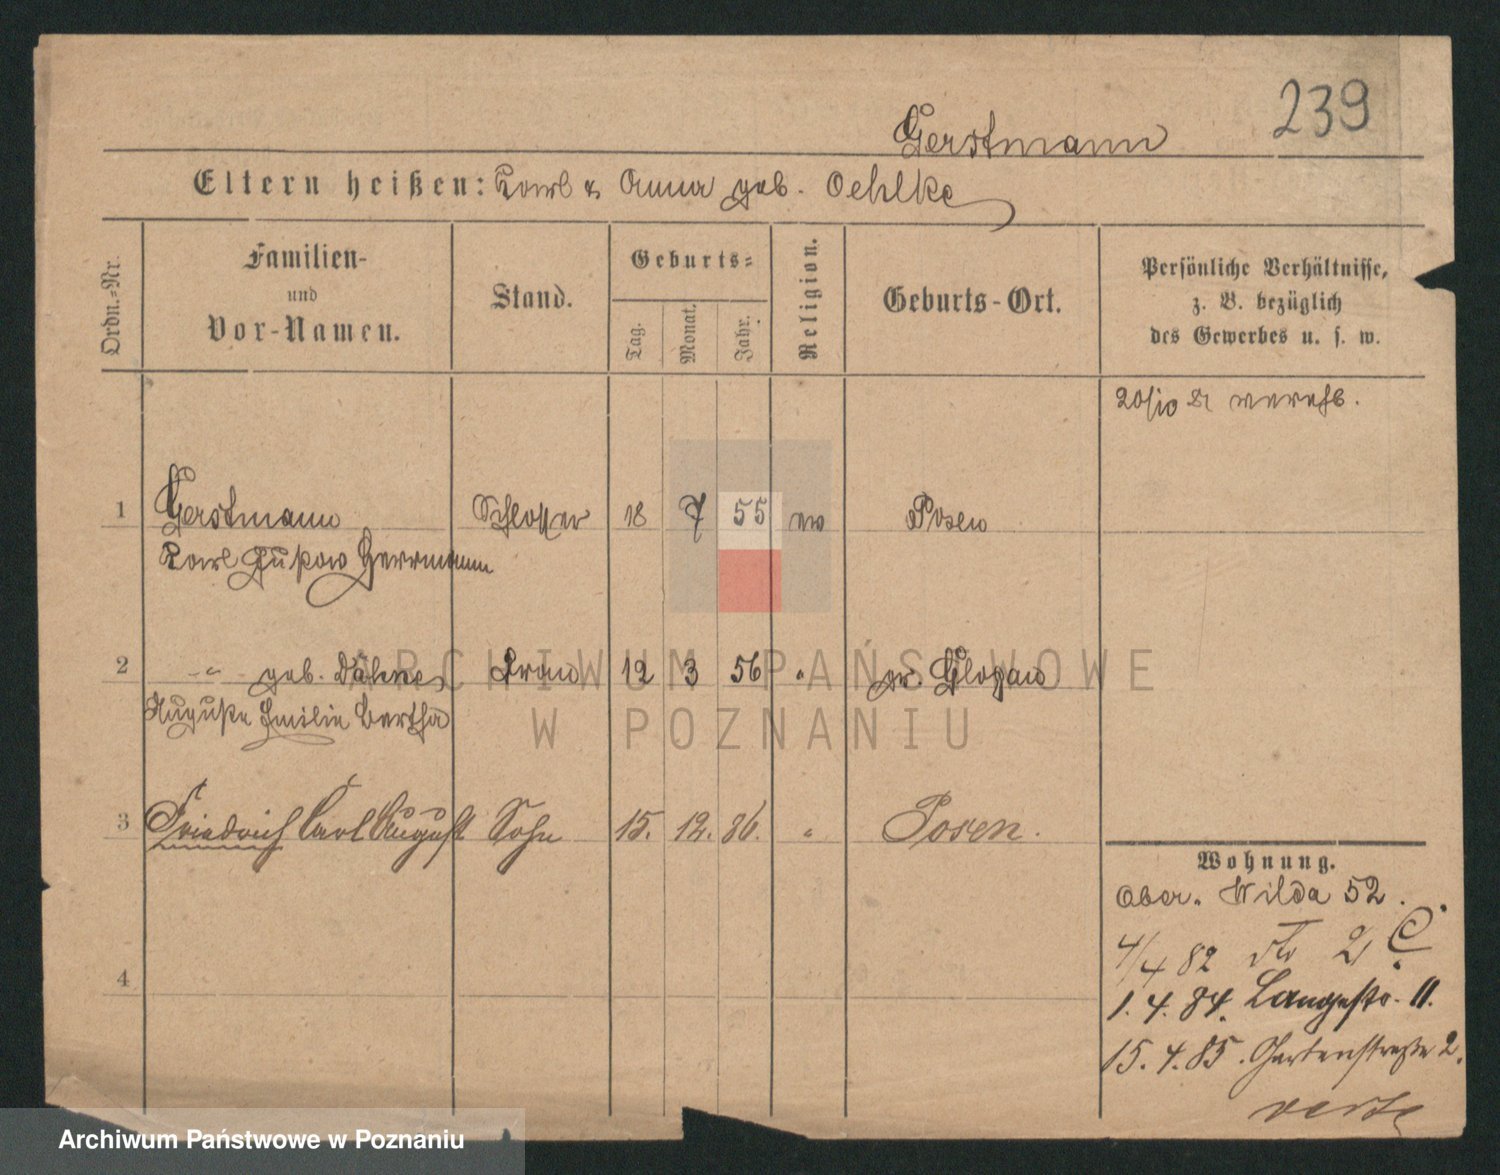 239
Gerstmann
Eltern heißen: Karl & Anna geb. Oehlke
Ordn.-Nr.
Familien-
und
Vor-Namen.
Stand.
Geburts-
Tag.
Monat.
Jahr.
Religion.
Geburts-Ort.
Persönliche Verhältnisse,
z. B. bezüglich
des Gewerbes u. s. w.
20/10 81 verehl.
1 Gerstmann Schlosser 18 7 55 ev Posen
Karl Gustav Herrmann
2 -"- geb. Dähne Frau 12 3 56 " gr. Glogau
Auguste Emilie Bertha
3 Friedrich Carl August Sohn 15. 12. 86. " Posen.
Wohnung.
Ober. Wilda 52.
4/4 82 dto 2
1. 4. 84. Langestr. 11.
15. 4. 85. Gartenstraße 2.
verte
4
ARCHIWUM PAŃSTWOWE
W POZNANIU
Archiwum Państwowe w Poznaniu